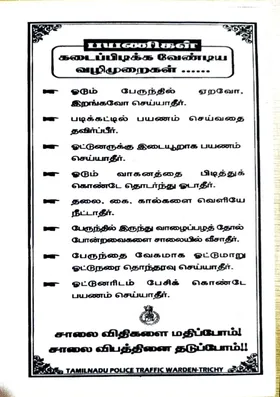 பயணிகள்
கடைப்பிடிக்க வேண்டிய
வழிமுறைகள் ......
ஓடும் பேருந்தில் ஏறவோ.
இறங்கவோ செய்யாதீர்.
படிக்கட்டில் பயணம் செய்வதை
தவிர்ப்பீர்.
ஓட்டுனருக்கு இடையூறாக பயணம்
செய்யாதீர்.
ஓடும் வாகனத்தை பிடித்துக்
கொண்டே தொடர்ந்து ஓடாதீர்.
தலை, கை, கால்களை வெளியே
நீட்டாதீர்.
பேருந்தில் இருந்து வாழைப்பழத் தோல்
போன்றவைகளை சாலையில் வீசாதீர்.
பேருந்தை வேகமாக ஓட்டுமாறு
ஓட்டுநரை தொந்தரவு செய்யாதீர்.
ஓட்டுனரிடம் பேசிக் கொண்டே
பயணம் செய்யாதீர்.
சாலை விதிகளை மதிப்போம்!
சாலை விபத்தினை தடுப்போம்!!
TAMILNADU POLICE TRAFFIC WARDEN-TRICHY